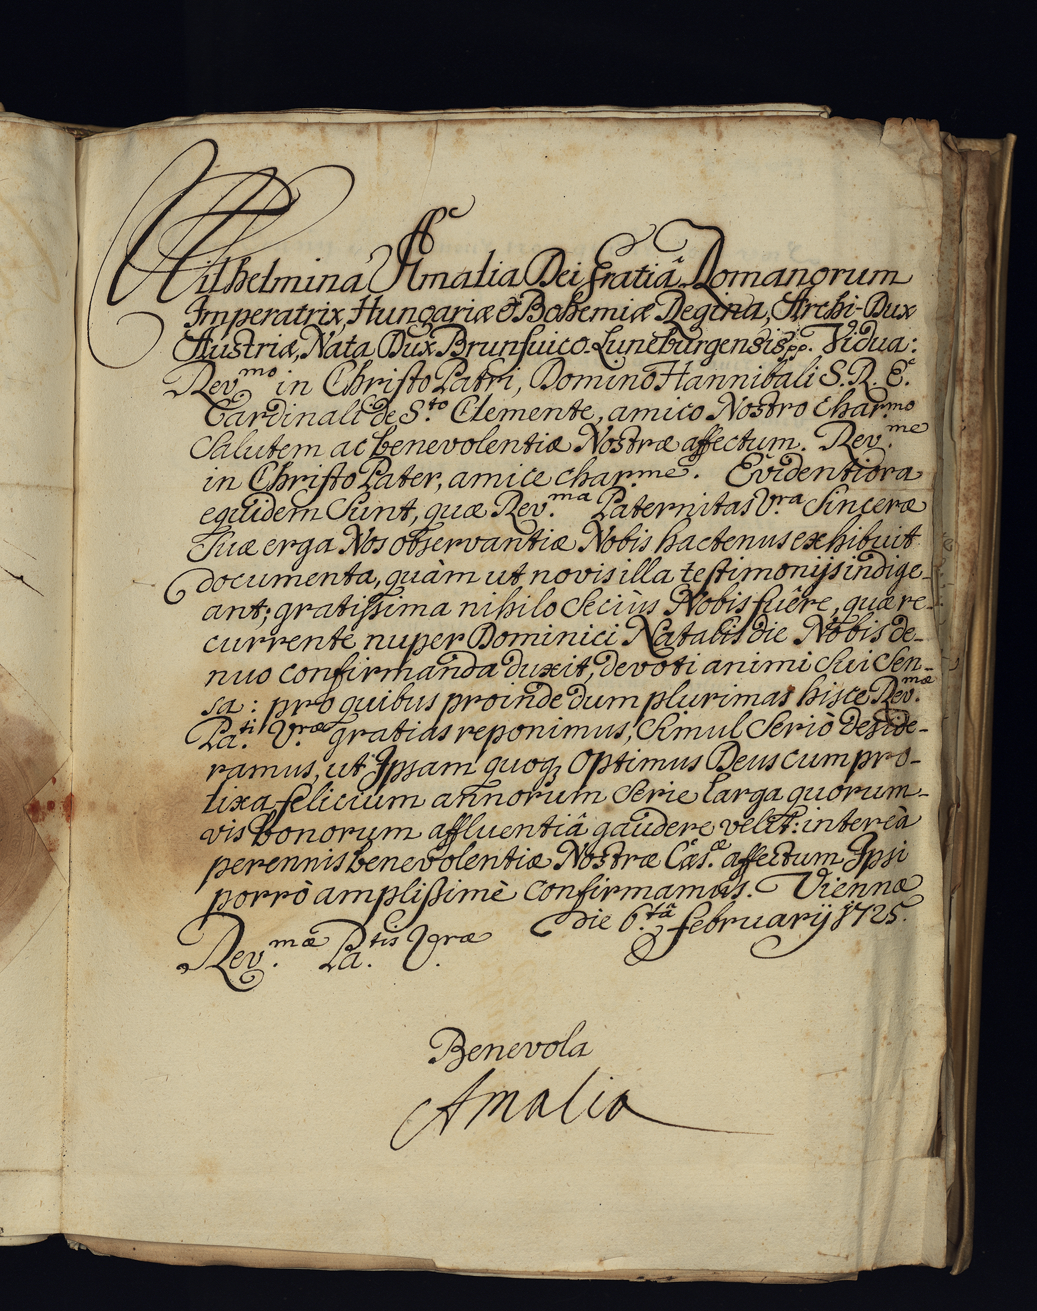 Wilhelmina Amalia Dei Gratiâ Romanorum
Imperatrix, Hungariæ & Bohemiæ Regina, Archi-Dux
Austriæ, Nata Dux Brunsuico-Luneburgensis pp. Vidua:
Rev.mo in Christo Patri, Domino Hannibali S. R. E.
Cardinali de S.to Clemente, amico Nostro char.mo
Salutem ac benevolentiæ Nostræ affectum. Rev.me
in Christo Pater, amice char.me. Evidentiora
equidem sunt, quæ Rev.ma Paternitas V.ra sinceræ
suæ erga Nos observantiæ Nobis hactenus exhibuit
documenta, quàm ut novis illa testimonijs indige-
ant; gratissima nihilo seciùs Nobis fuêre, quæ re-
currente nuper Dominici Natalis die Nobis de-
nuo confirmanda duxit, devoti animi sui sen-
sa: pro quibus proinde dum plurimas hisce Rev.mæ
Pa.ti V.ræ gratias reponimus, simul seriò deside-
ramus, ut Ipsam quoq; Optimus Deus cum pro-
lixa felicium annorum serie larga quorum-
vis bonorum affluentiâ gaudere velit: intereà
perennis benevolentiæ Nostræ Cæs.æ affectum Ipsi
porrò amplissimè confirmamus. Viennæ
die 6.tâ februarij 1725.
Rev.mæ Pa.tis V.ræ
Benevola
Amalia